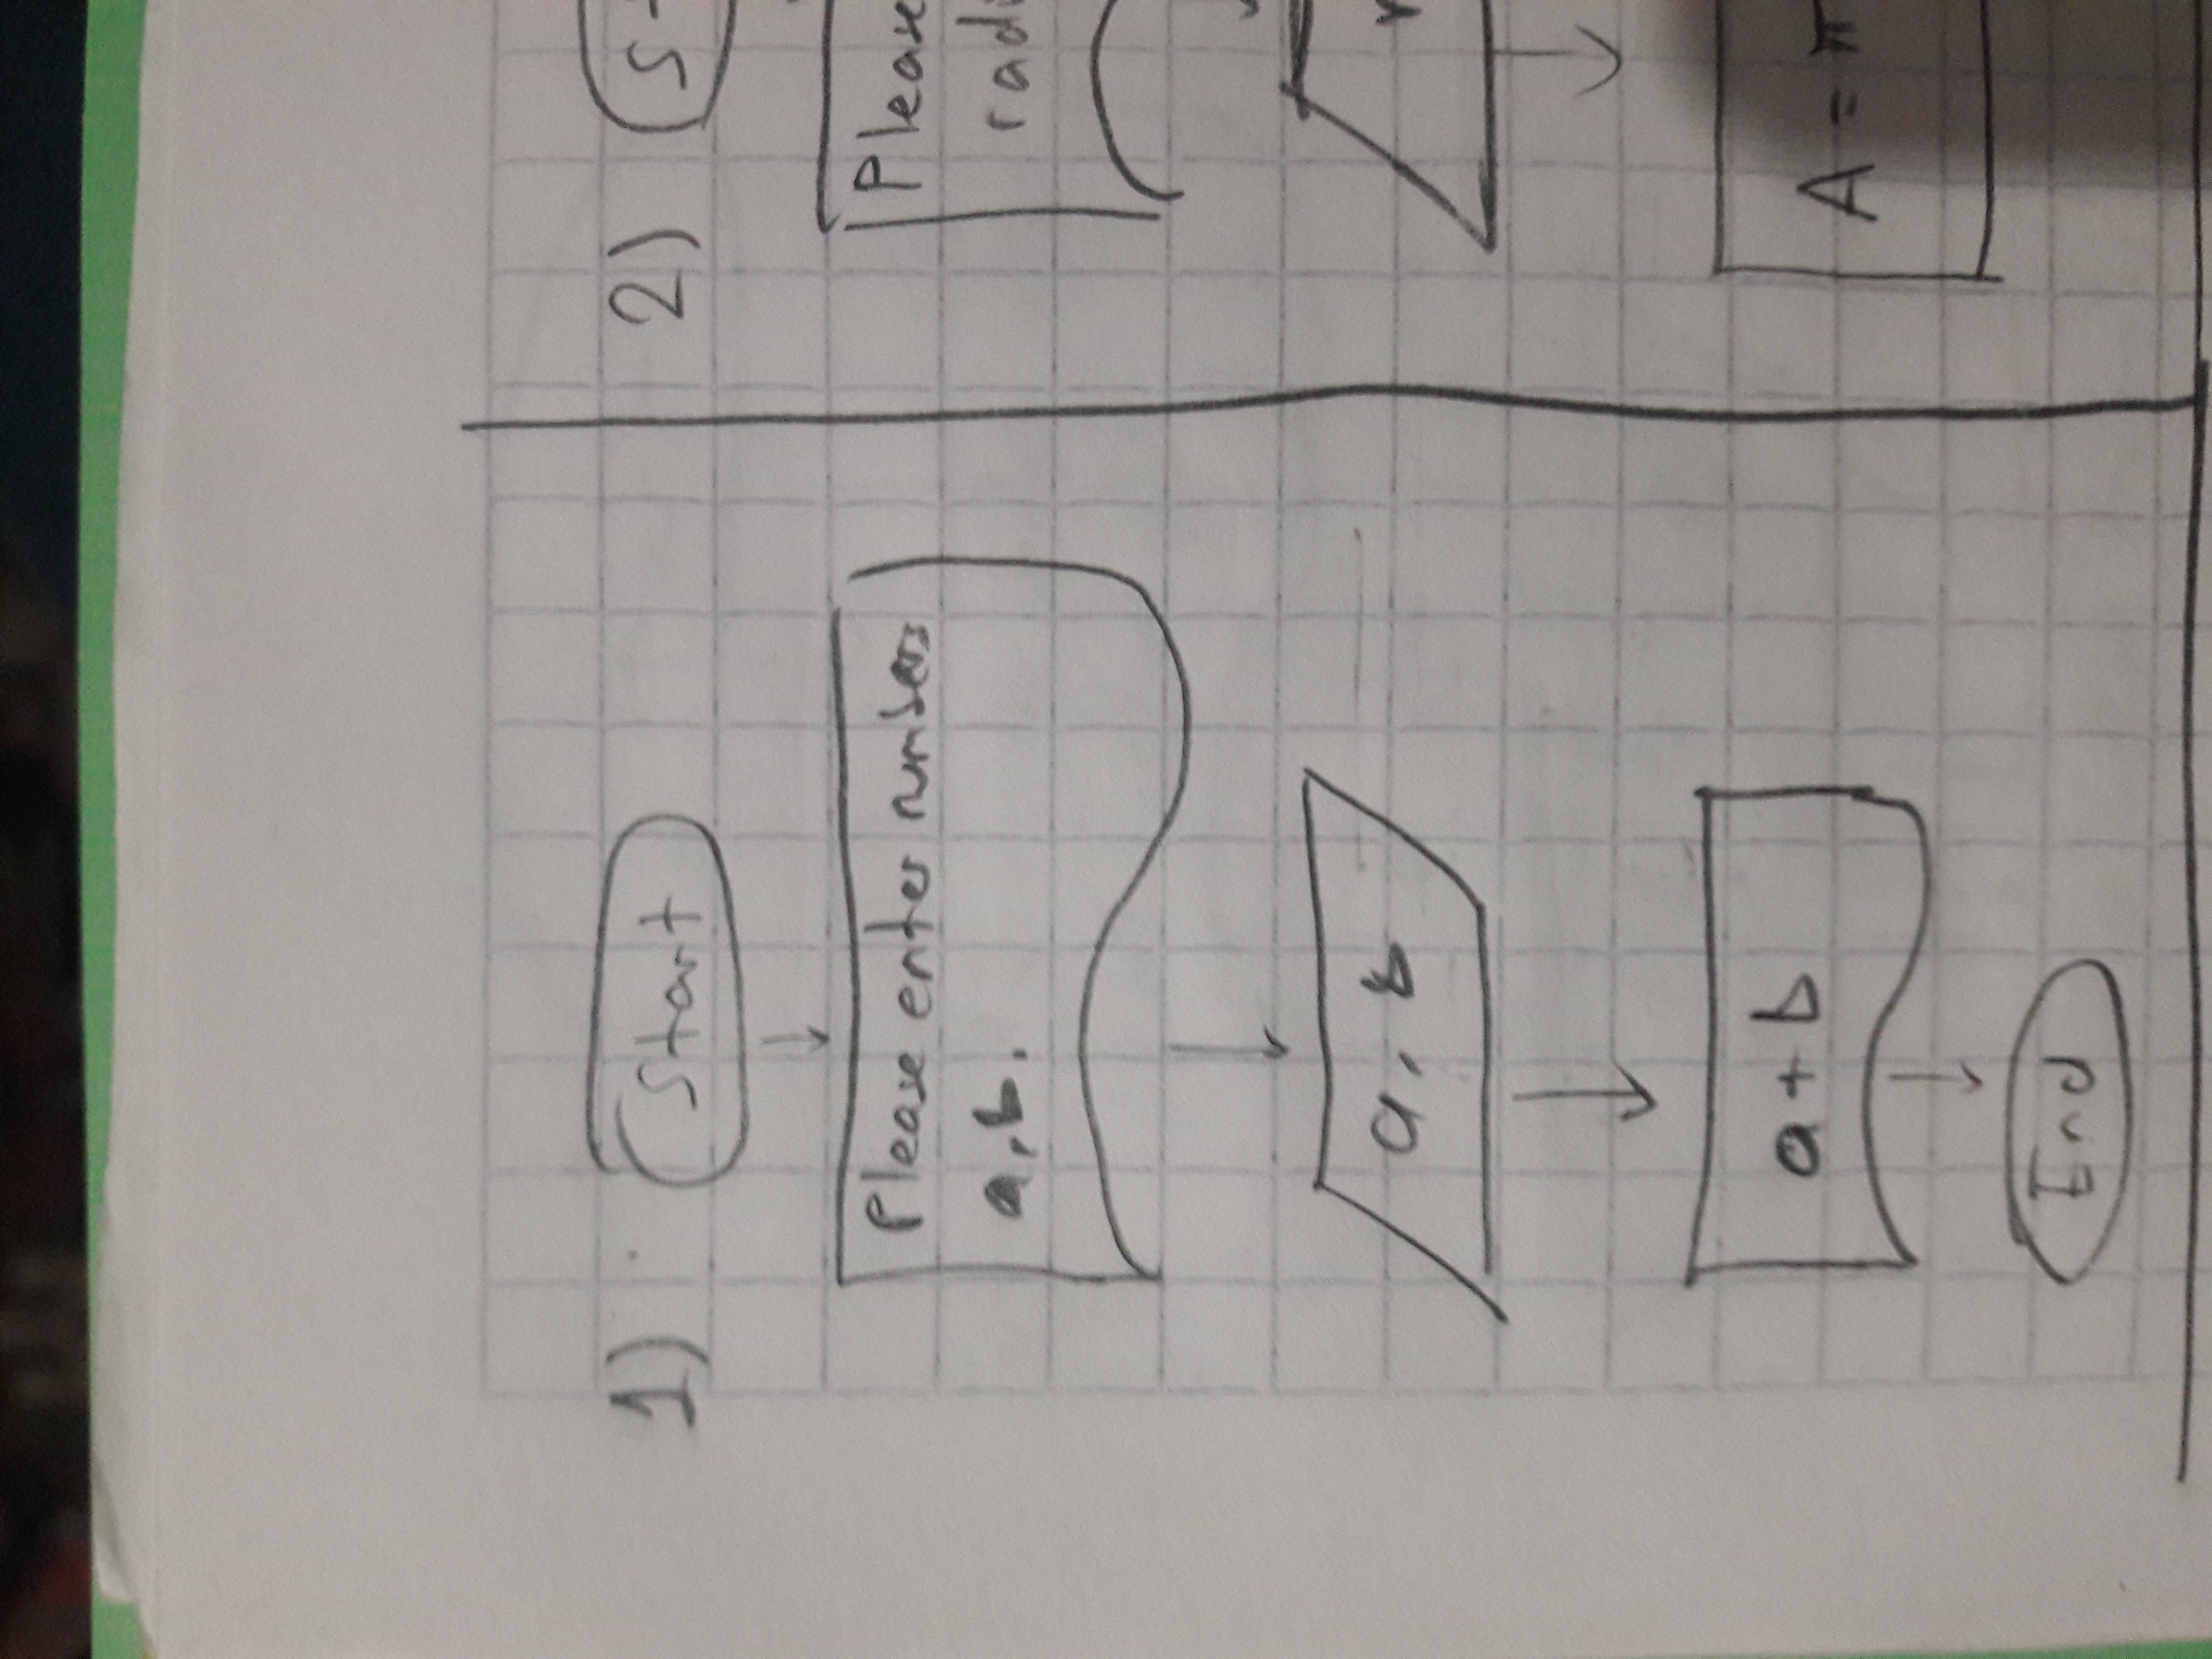 1)
Start
Please enter numbers
a, b.
a, b
a + b
End
2)
Please
A = π